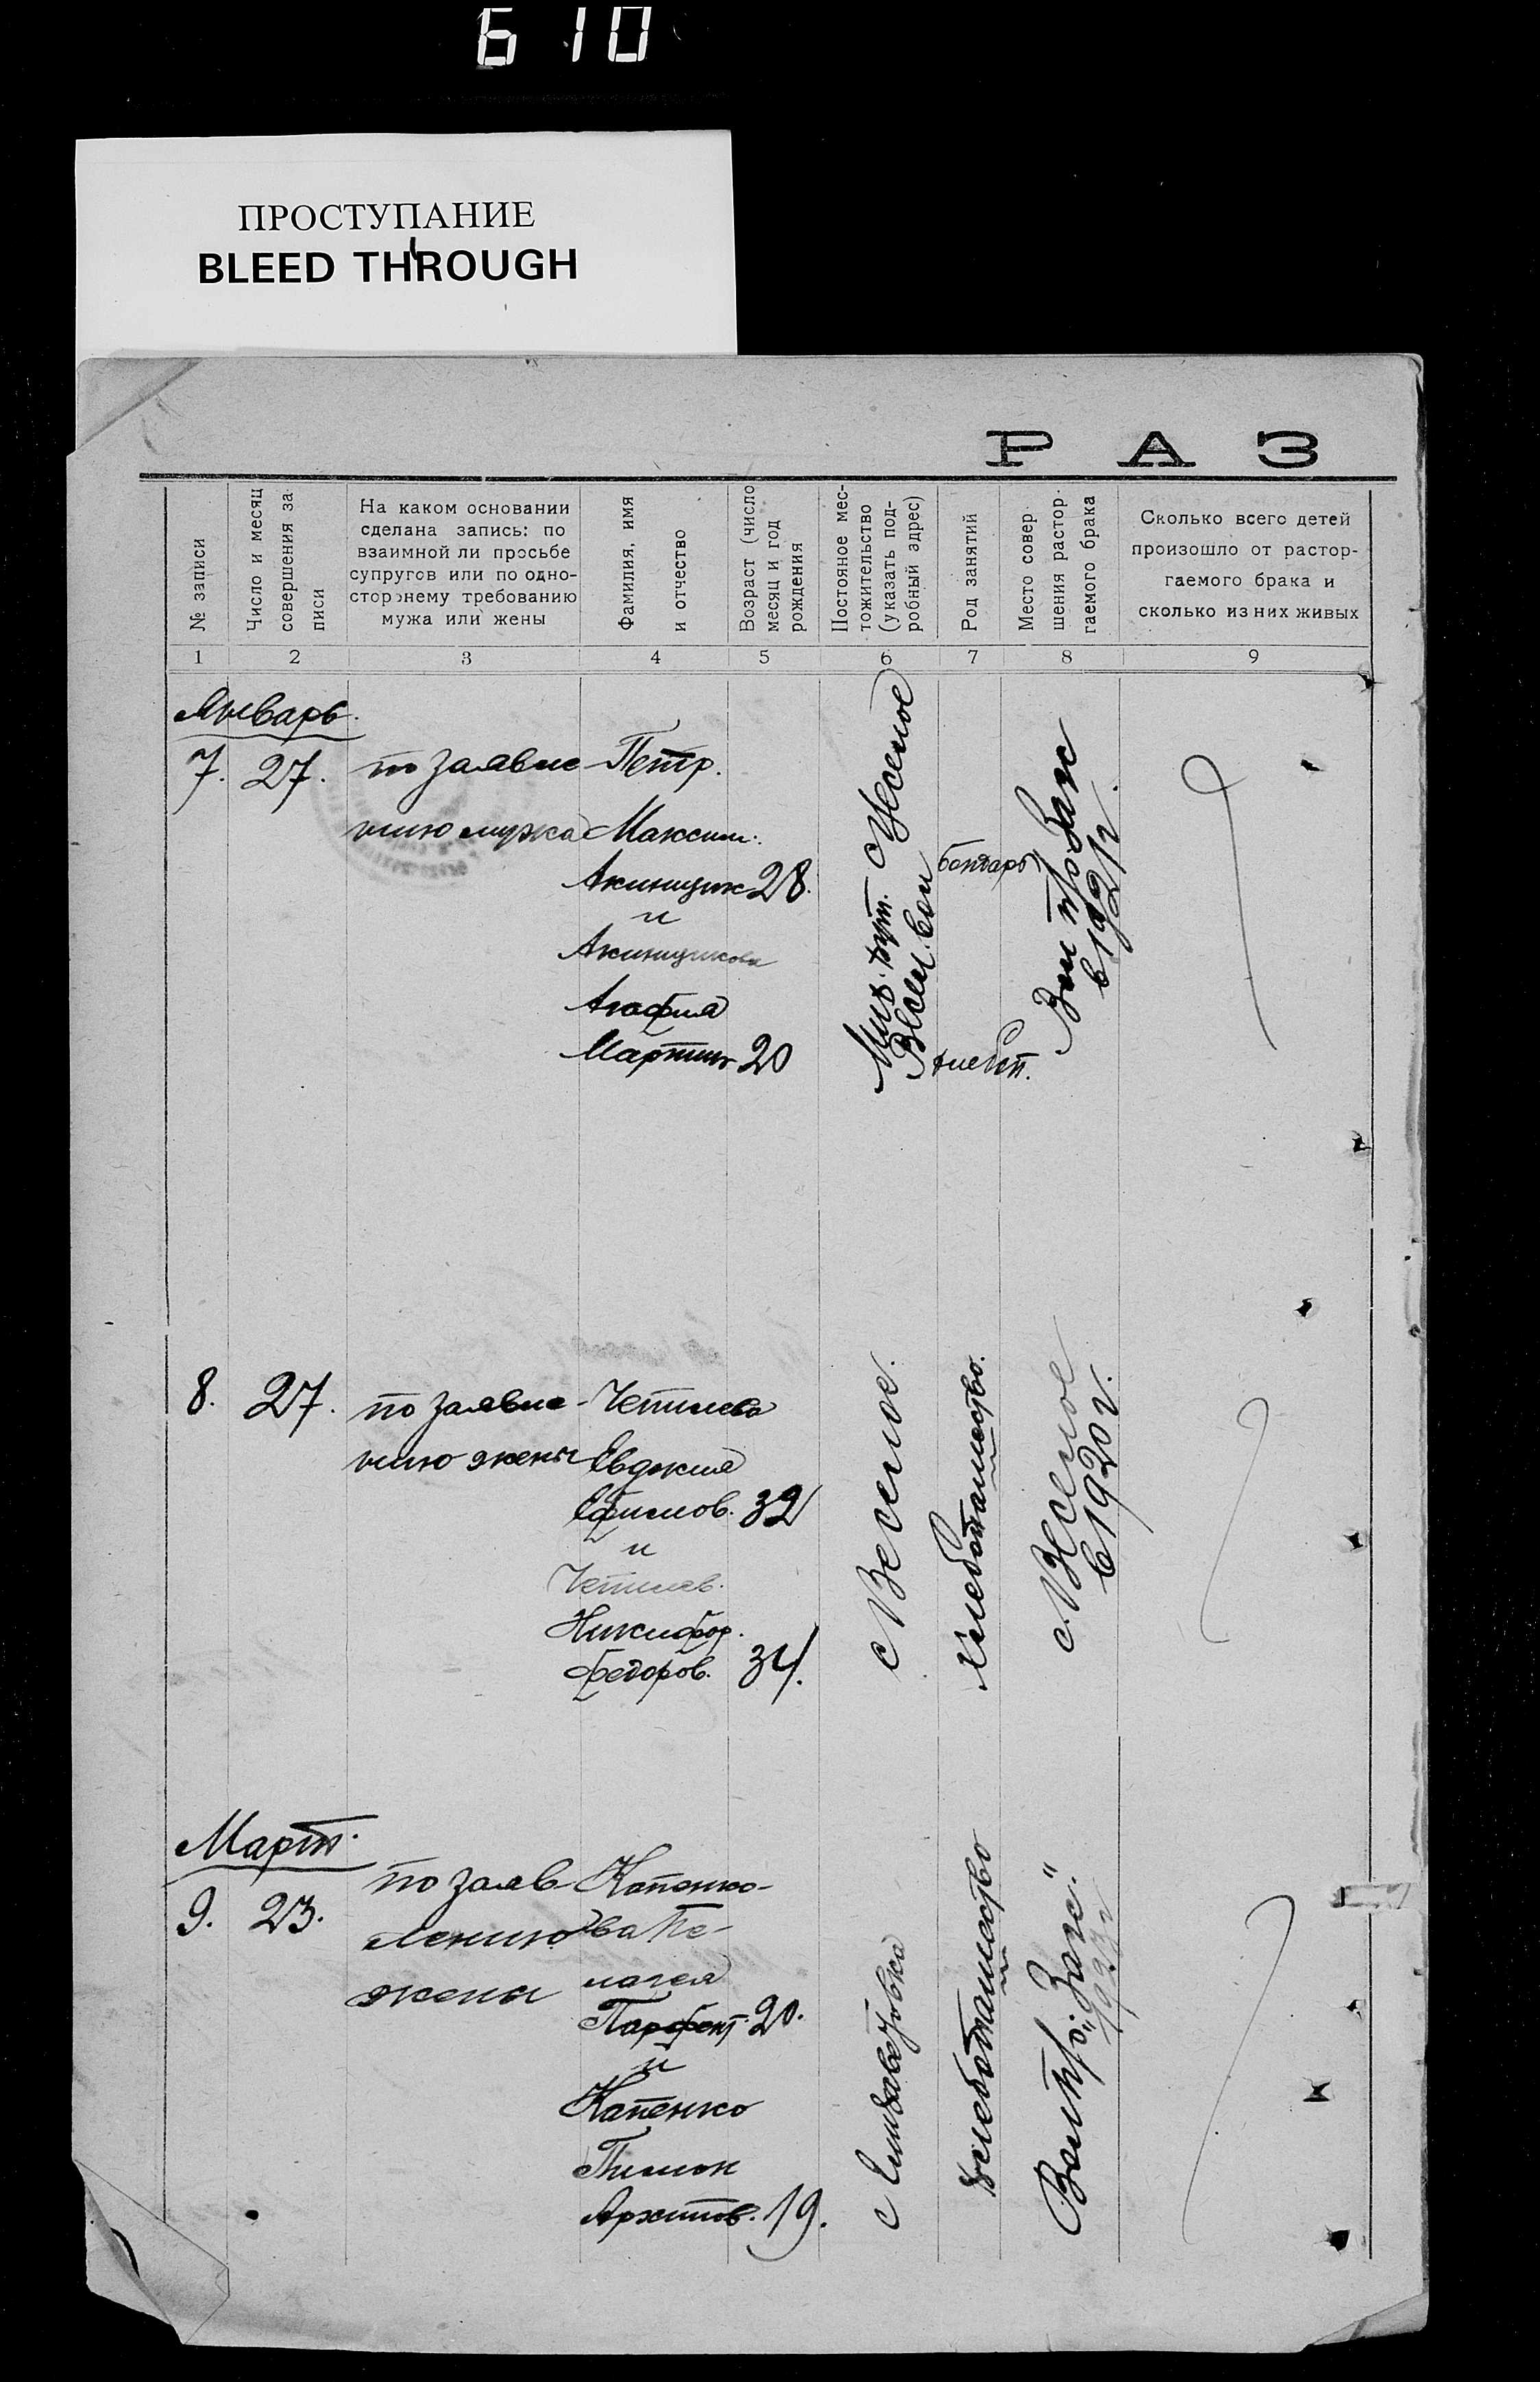 610
ПРОСТУПАНИЕ
BLEED THROUGH
РАЗ
№ записи
Число и месяц
совершения за
писи
На каком основании
сделана запись: по
взаимной ли просьбе
супругов или по одно-
стороннему требованию
мужа или жены
Фамилия, имя
и отчество
Возраст (число
месяц и год
рождения
Постояное мес-
тожительство
(указать под-
робный адрес)
Род занятий
Место совер.
шения растор.
гаемого брака
Сколько всего детей
произошло от растор-
гаемого брака и
сколько из них живых
1 2 3 4 5 6 7 8 9
Январь.
7. 27. по заявле- Петр.
нию мужа Максим.
28.
и
Агафия
Мартин 20
с Веселое
бондарь
в 1921 г.
8. 27. по заявле-
нию жены Евдокия
Ефимов. 32
и
Никифор.
Федоров. 34.
с Веселое.
хлебопашество.
с. Веселое
в 1920 г.
Март.
9. 23. по заяв Капенко-
лению ва Пе-
жены лагея
Парфент. 20.
и
Капенко
Пимон
Архипов. 19.
с Елизаветовка
хлебопашество
"Загс".